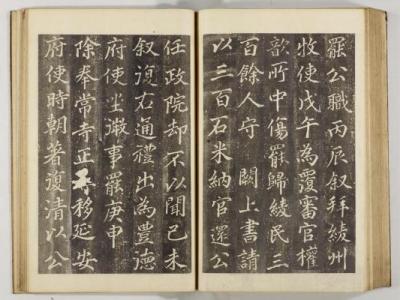 罷公職丙辰叙拜綾州
牧使戊午為覆審官權
歆所中傷罷歸綾民三
百餘人守 闕上書請
以三百石米納官還公
任政院却不以聞己未
叙復右通禮出為豊德
府使坐微事罷庚申
除奉常寺正尋移延安
府使時朝著復清以公